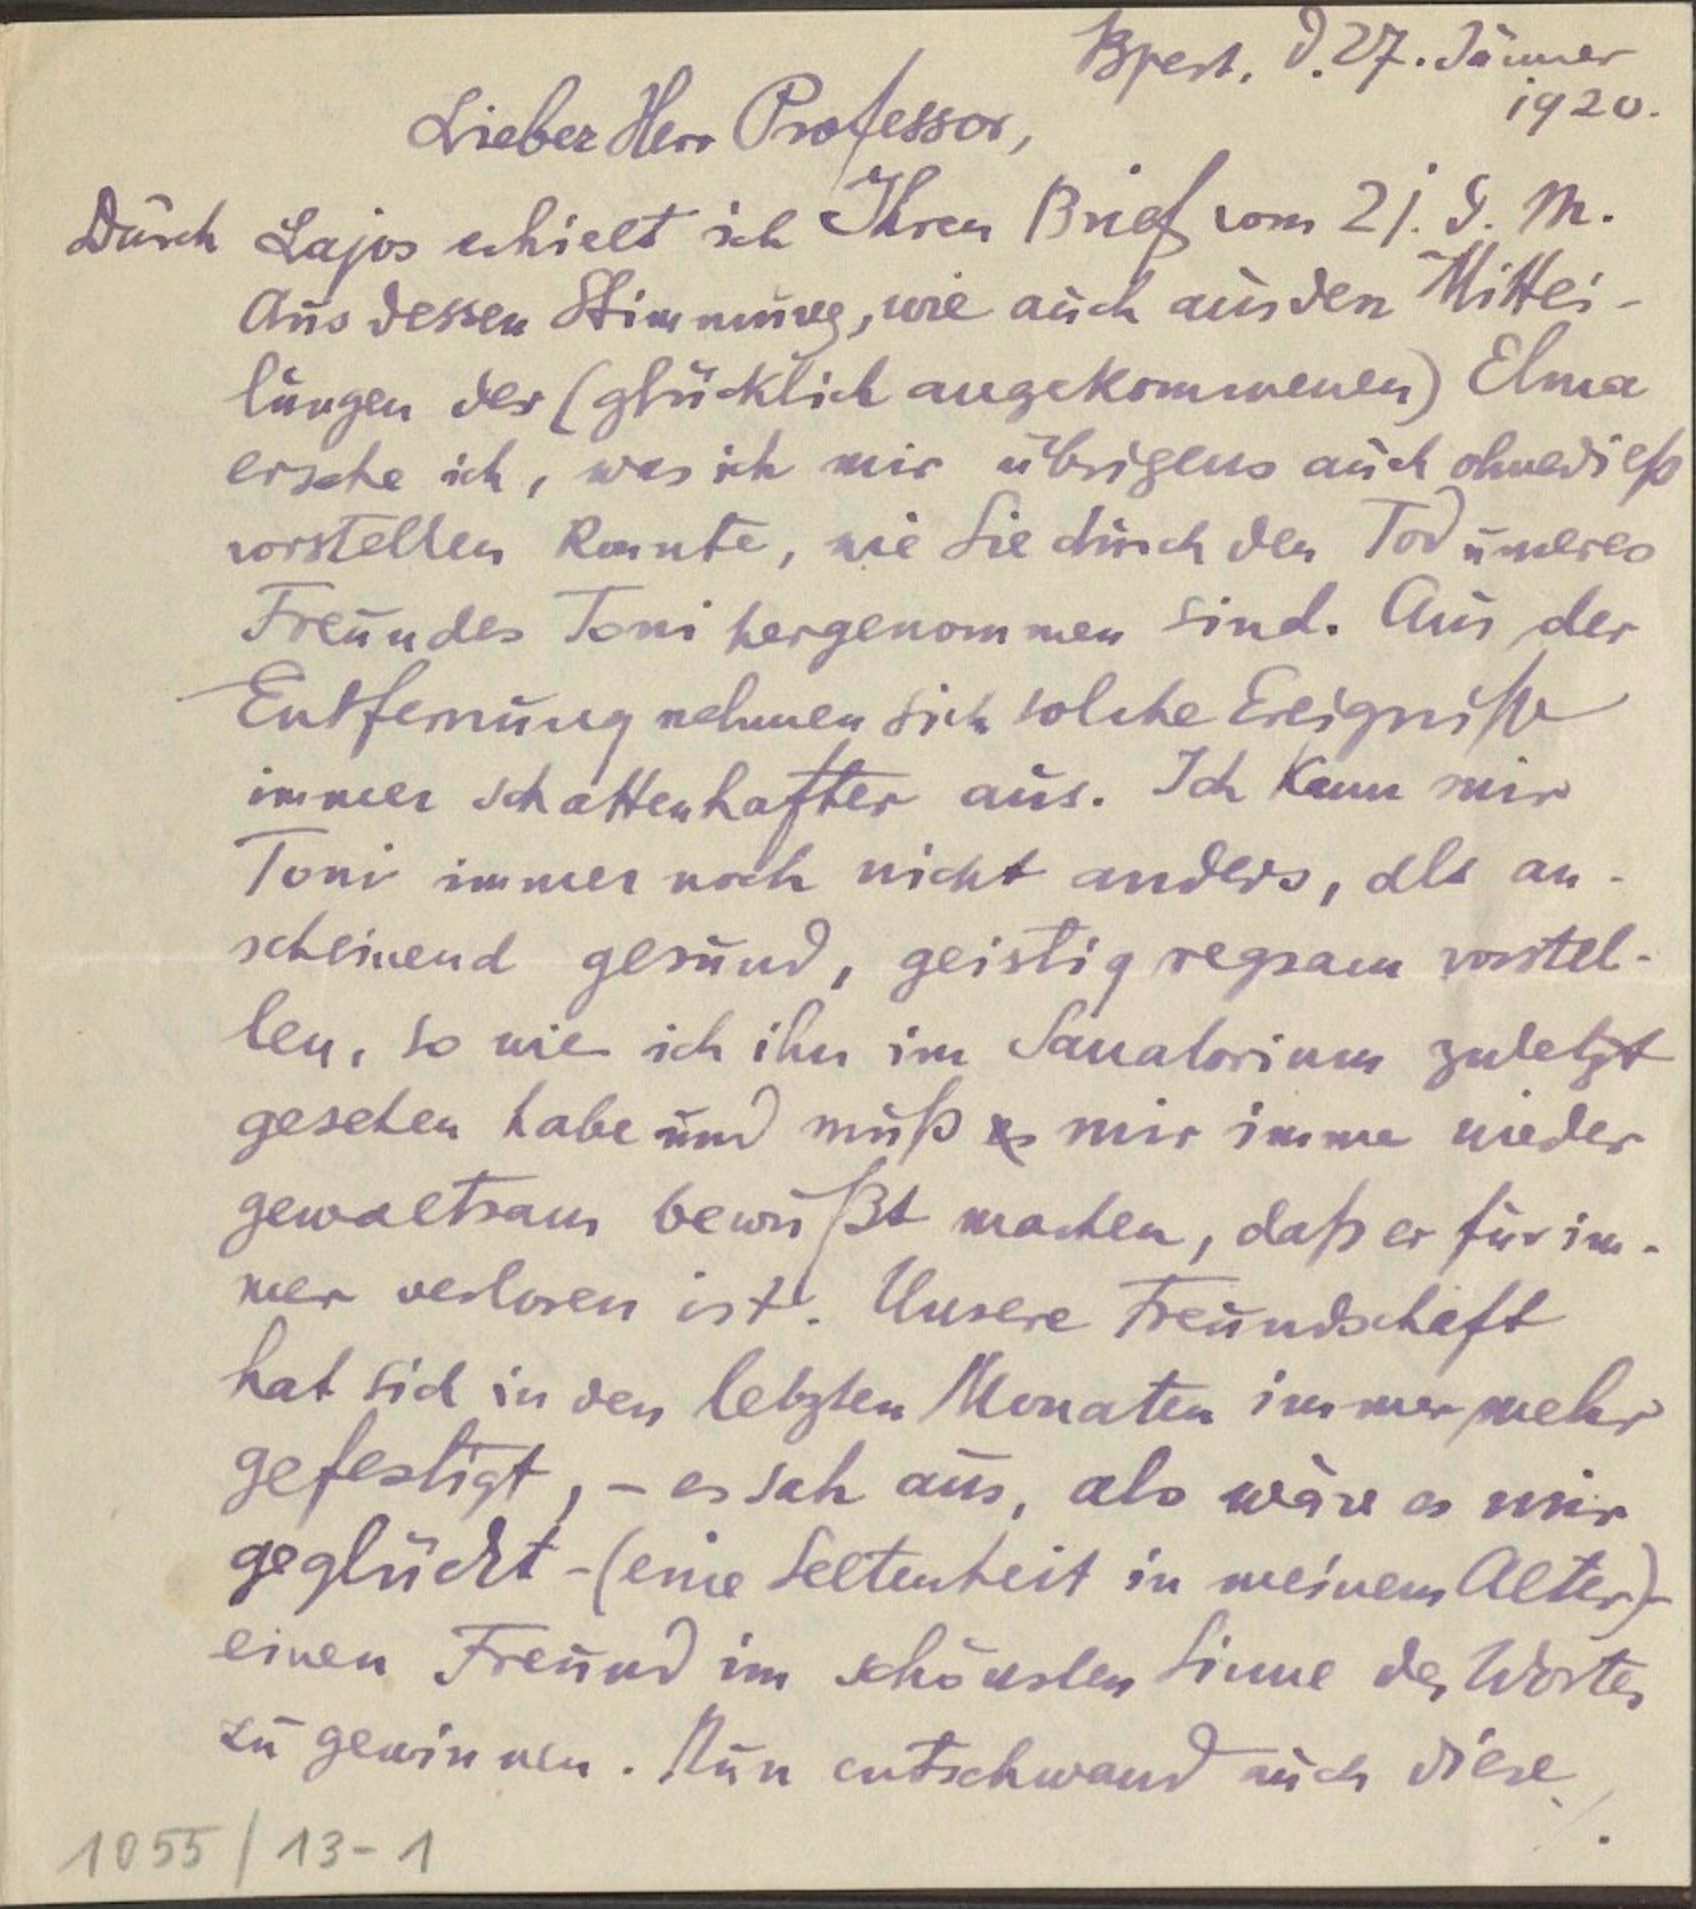 Bpest, d. 27. Jänner
1920.
Lieber Herr Professor,
Durch Lajos erhielt ich Ihren Brief vom 21. d. M.
Aus dessen Stimmung, wie auch aus den Mittei-
lungen der (glücklich angekommenen) Elma
ersehe ich, was ich mir übrigens auch ohnedieß
vorstellen konnte, wie Sie durch den Tod unseres
Freundes Toni hergenommen sind. Aus der
Entfernung nehmen sich solche Ereigniße
immer schattenhafter aus. Ich kann mir
Toni immer noch nicht anders, als an-
scheinend gesund, geistig regsam vorstel-
len, so wie ich ihn im Sanatorium zuletzt
gesehen habe und muß es mir imme wieder
gewaltsam bewußt machen, daß er für im-
mer verloren ist. Unsere Freundschaft
hat sich in den letzten Monaten immer mehr
gefestigt, – es sah aus, als wäre es mir
geglückt – (eine Seltenheit in meinem Alter) –
einen Freund im schönsten Sinne des Wortes
zu gewinnen. Nun entschwand auch diese
./.
1055/13-1